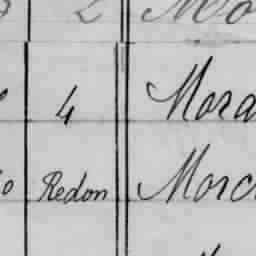 2 Mo
4 Mora
Redon Morc